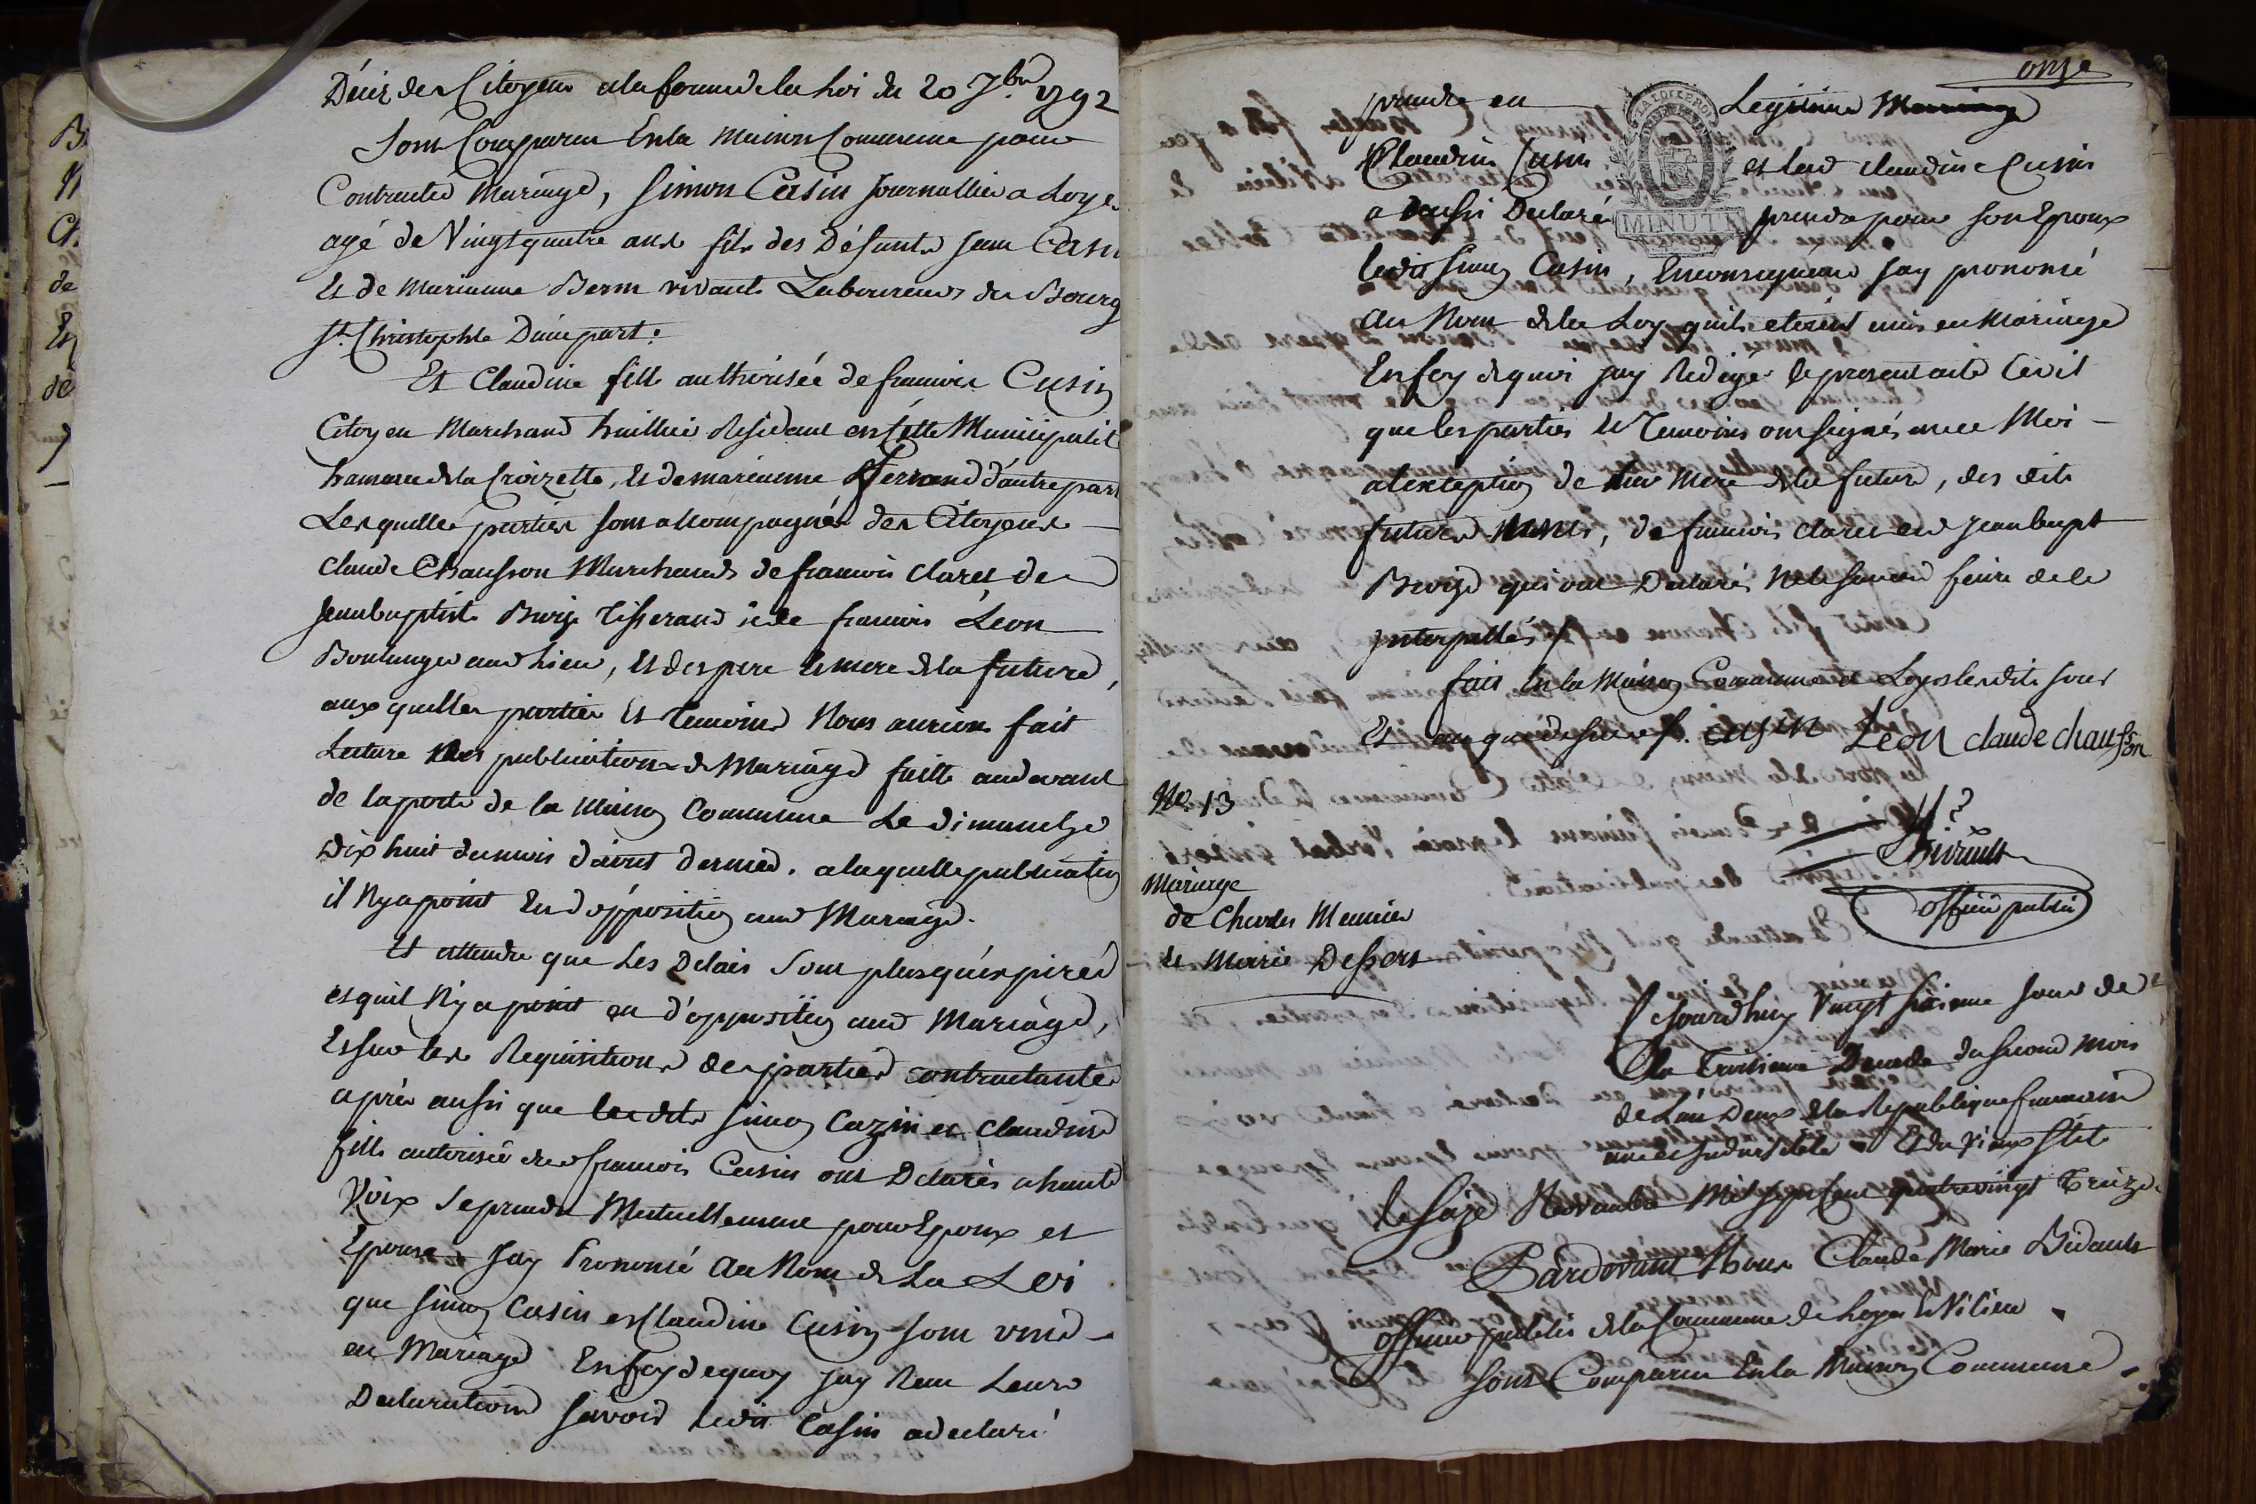 Décis des Citoyens a la forme de la Loi du 20 7bre 1792
Sont Comparus En la Maison Commune pour
Contracter Mariage, Simon Casin Journallier a Loyes
agé de Vingt quatre ans fils des Défunts Jean Casin
Et de Marianne Berm vivants Laboureurs du Bourg
St Christophle D'une part.
Et Claudine fille authorisée de francois Cusin
Citoyen Marchand huillier Résidant en cette Municipalité
hameau de la Croizette, Et de marianne ferrand d'autre part
Lesquelles parties sont accompagnés des Citoyens
claude Chausson Marchand de francois claret de
Jeanbaptiste Buize Tisserand et de francois Léon
Boulanger aud lieu, Et des pere Et mere de la future,
auxquelles parties Et Temoins Nous avrions fait
Lecture des publications de Mariage faitte audevant
de la porte de la Maison Commune Le dimanche
Dix huit du mois d'avril dernier. a laquelle publication
il N'y a point Eu d'oppposition aud Mariage.
Et attendu que Les Delais sont plus qu'expirés
et quil N'y a point eu d'opposition aud Mariage,
Et sur les Requisitions des parties contractantes
après aussi que lesdits Simon Cazin et Claudine
fille autorisée de francois Cusin ont Déclarés a haute
Voix se prendre Mutuellement pour Epoux et
Epouse Jay Prononcé Au Nom de La Loi
que Simon Casin et Claudine Cusin sont unis
en Mariage En foy de quoy jay Recu Leurs
Declarations savoir ledit Casin a declaré
onze
prendre en Legitime Mariage
Claudine Cusin et lad claudine Cusin
a aussi Declaré prendre pour son Epoux
LA LOI ET LE ROI
MINUTE
ledit Simon Casin, En consequence jay prononcé
Au Nom de la Loy quils etoient unis en Mariage
En foy de quoi jay Redigé le present acte Civil
que les parties Et Temoins ont signés avec Moi
a l'exception de la Mere de la future, des dits
futurs, de francois claret et de Jeanbapt
Buize qui ont Declarés Ne le savoir faire de ce
interpellés
fait En la Maison Commune de Loyes lesdits jour
Et an que dessus f. cusin Léon claude chausson
No. 13
officier public
Mariage
de Charles Meunier
Et Marie Desser
Aujourd'huy Vingt sixieme jour de
la Troisieme Decade du second mois
de L'an Deux de la Republique francaise
une et Indivisible Et du Vieux stile
le seize Novembre Mil sept cent quatrevingt Treize
Pardevant Nous Claude Marie Bidault
officier public de la Commune de Loyes Et Vilieu
sont Comparus En la Maison Commune